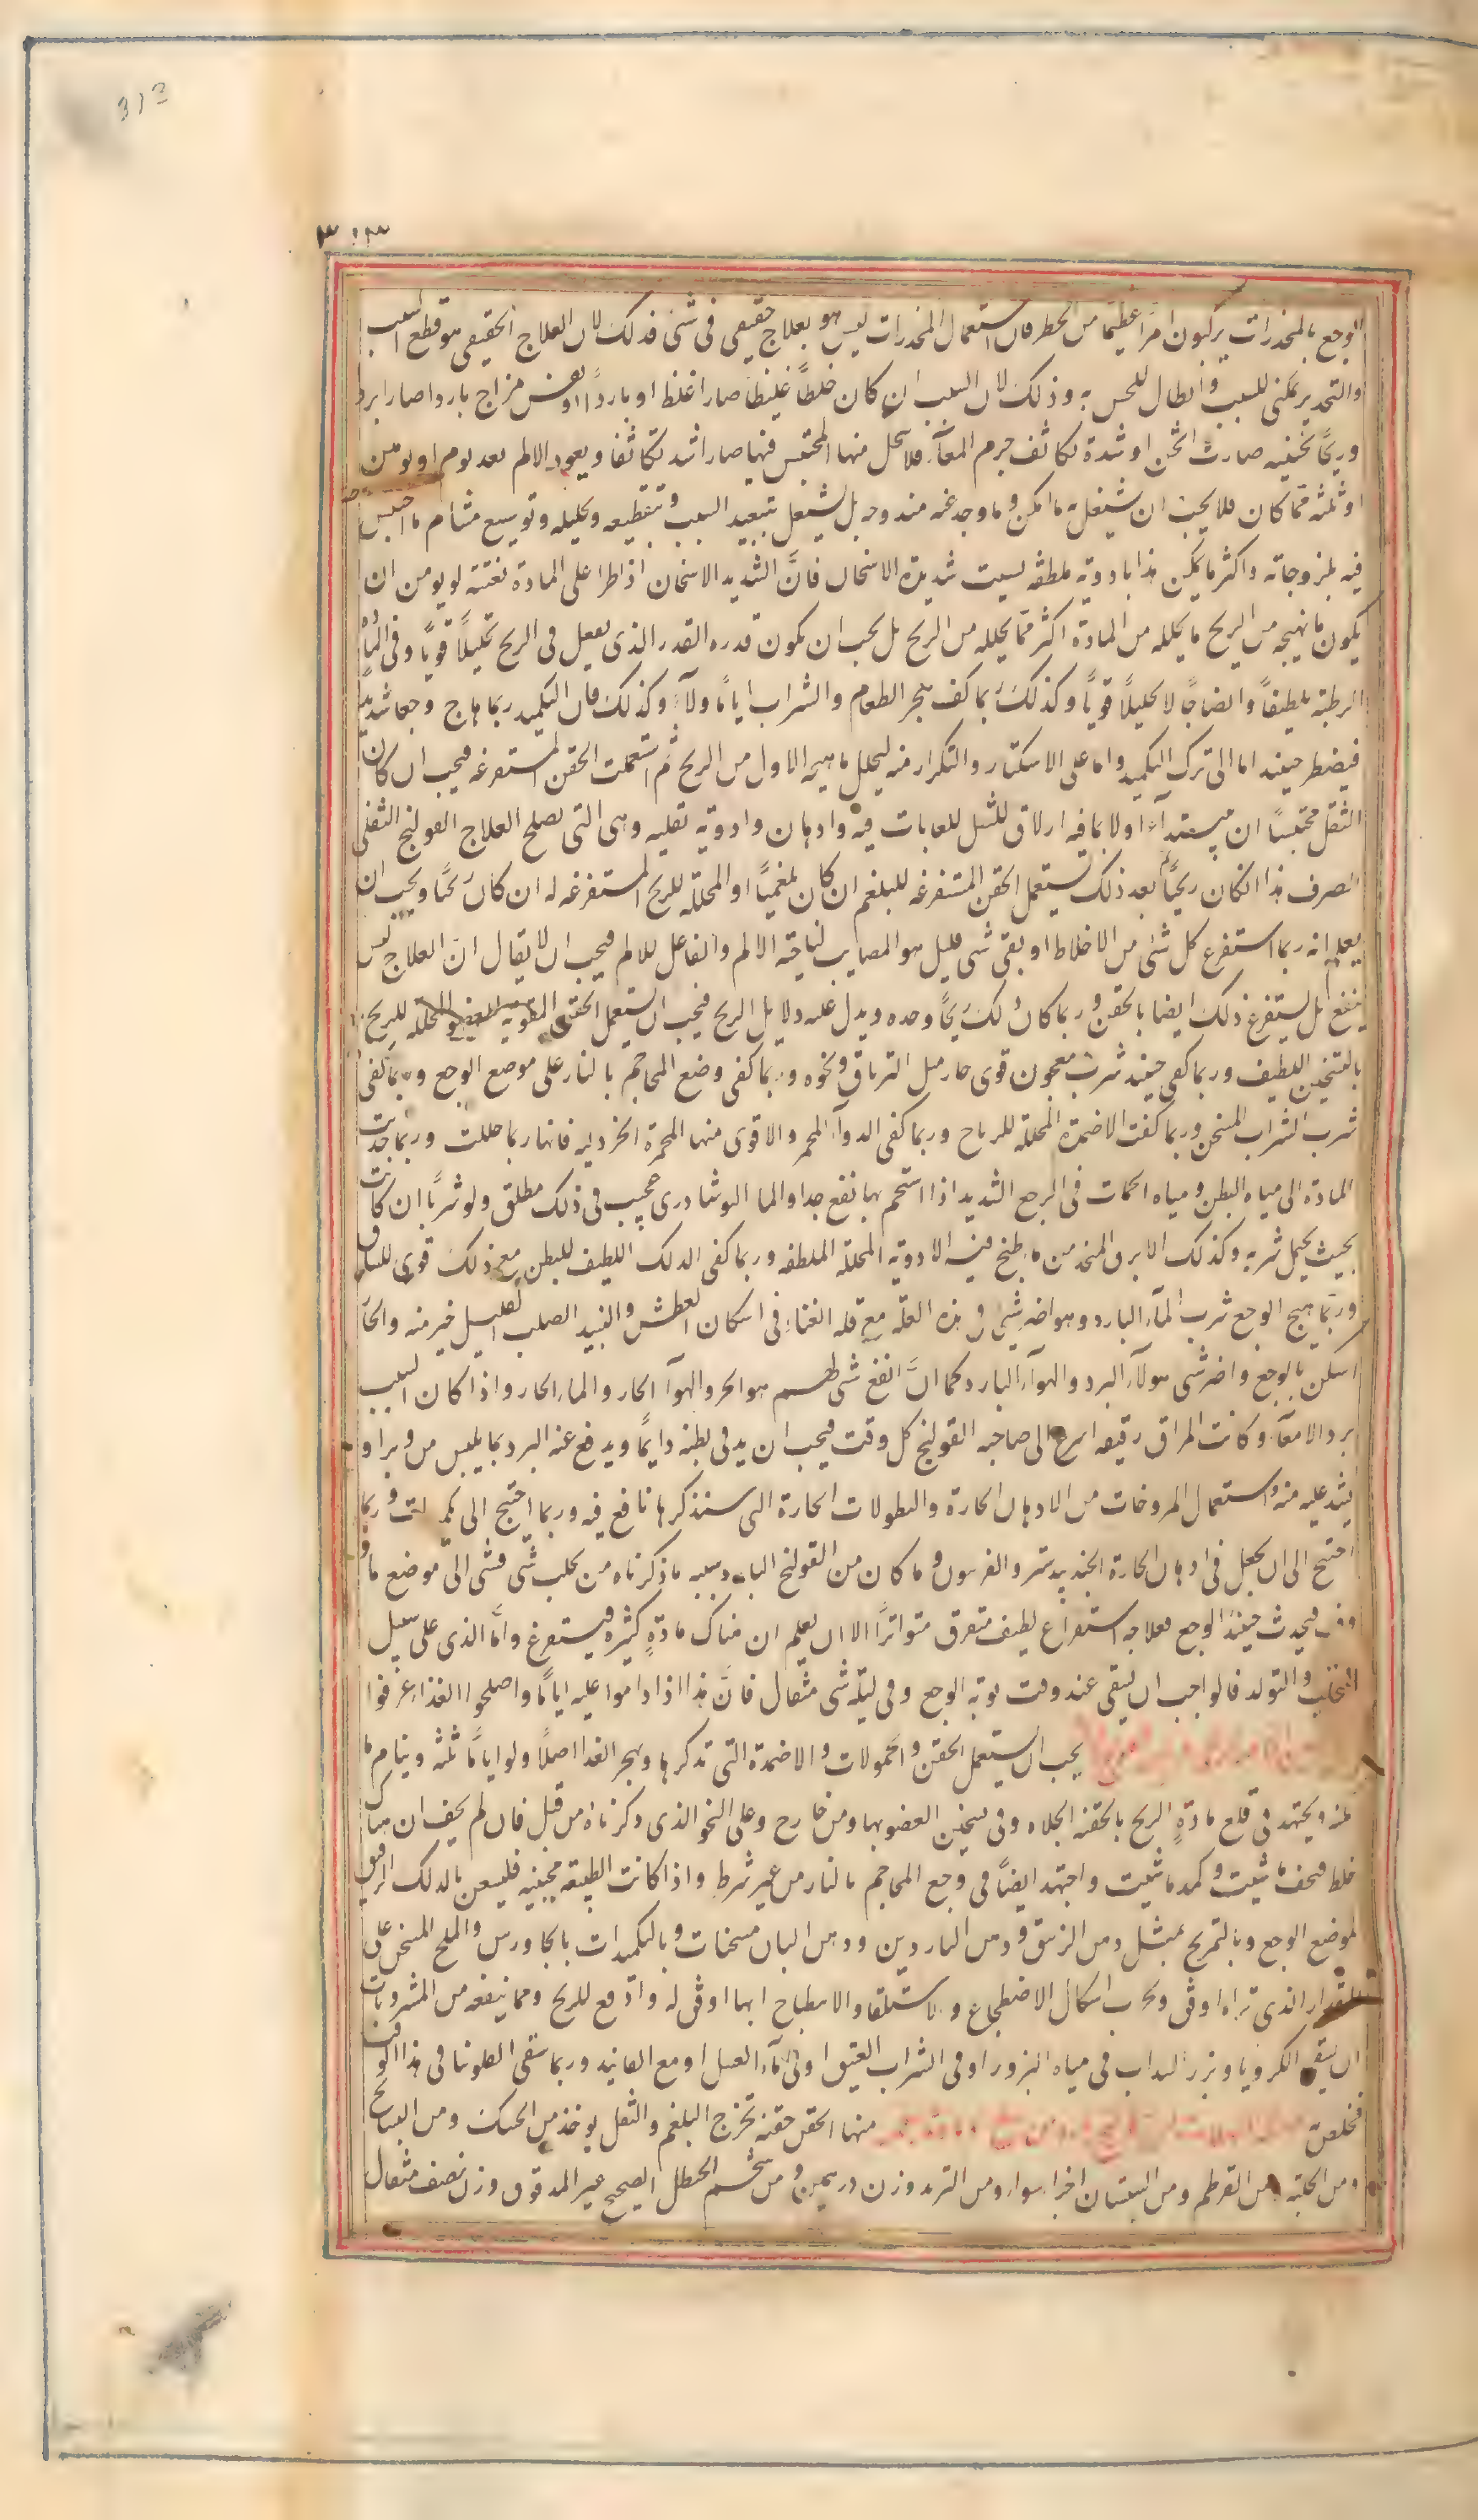 313
٣١٣
الوجع بالمخدرات يركبون امرًا عظيمًا من الخطر فان استعمال المخدرات ليس هو بعلاج حقيقى فى شئ فذلك لان العلاج الحقيقى هو قطع السبب
والتخدير تمكن للسبب وابطال للحس به وذلك لان السبب ان كان خلطًا غليظًا صار اغلظ او باردًا او نفس مزاج باردا صار ابرد
وريحًا ثخينه صارت اثخن او شدة تكاثف جرم المعآء فلا يتحل منها المحتبس فيها صار اشد تكاثفا ويعود الالم بعد يوم او يومين
او ثلثه فما كان فلا يجب ان يشتغل به ما امكن وما وجد عنه مندوحه بل يشتغل بتبعيد السبب وتقطيعه وتحليله وتوسيع مسام ما احتبس
فيه بلزوجاته واكثر ما يمكن هذا بادوية ملطفه ليست شديدة الاسخان فانَّ الشديد الاسخان اذا طرا على المادة بغتة لم يومن ان
يكون ما يهيجه من الريح ما يحلله من المادة اكثر مما يحلله من الريح بل يجب ان يكون قدره القدر الذى يفعل فى الريح تحليلًا قويًا وفى المادة
الرطبة تلطيفًا وانضاجًا لا تحليلًا قويًا وكذلك ربما كفى هجر الطعام والشراب ايامًا ولآء وكذلك فان التكميد ربما هاج وجعا شديدًا
فيضطر حينئذ اما الى ترك التكميد واما على الاستكثار والتكرار منه ليحلل ما هيجه الاول من الريح ثم استعملت الحقن المستفرغه فيجب ان كان
الثفل محتبسًا ان يبتدآء اولا بما فيه ازلاق للثفل للعابات فيه وادهان وادوية ثفليه وهى التى تصلح لعلاج القولنج الثفلى
الصرف هذا ان كان ريحيًا ثم بعد ذلك تستعمل الحقن المستفرغه للبلغم ان كان بلغميًا او المحلله للريح المستفرغه له ان كان ريحًا ويجب ان
يعلم انه ربما استفرغ كل شئ من الاخلاط او بقى شى قليل هو المصاب لناحية الالم والفاعل للالم فيجب ان لا يقال انّ العلاج ليس
ينفع بل يستفرغ ذلك ايضا بالحقن وربما كان ذلك ريحًا وحده ويدل عليه دلايل الريح فيجب ان يستعمل الحقن المقويه للعضو المحلله للريح
بالتسخين اللطيف وربما كفى حينئذ شرب معجون قوى حار مثل الترياق ونحوه وربما كفى وضع المحاجم بالنار على موضع الوجع وربما كفى
شرب الشراب المسخن وربما كفت الاضمدة المحللة للرياح وربما كفى الدوآء المحمر والاقوى منها المحمرة الخردليه فانها ربما حللت وربما جذبت
المادة الى مياه البطن ومياه الحمات فى الوجع الشديد اذا استحم بها نفع جدا والما النوشادرى عجيب فى ذلك مطلق ولو شربًا ان كانت
بحيث يحتمل شربه وكذلك الابزن المتخذ من ما طبخ فيه الادوية المحللة الملطفه وربما كفى الدلك اللطيف للبطن مع ذلك قوى للساق
وربّما يهيج الوجع شرب المآء البارد وهو اضر شى فى هذه العلّه مع قله الغناء فى اسكان العطش والنبيد الصلب القليل خير منه والحار
اسكن بالوجع واضر شى هولآء البرد والهوآء البارد كما انَّ انفع شى لهم هو الحر والهوآ الحار والما الحار واذا كان السبب
برد الامعآء وكانت المراق رقيقه اسرع الى صاحبه القولنج كل وقت فيجب ان يدفى بطنه دايمًا ويدفع عنه البرد بما يلبس من وبر او
يشد عليه منه واستعمال المروخات من الادهان الحارة والنطولات الحارة التى سنذكرها نافع فيه وربما احتيج الى تكميدات وربما
احتيج الى ان يجعل فى ادهان الحارة الجندبيدستر والفربيون وما كان من القولنج البارد سببه ما ذكرناه من تحلب شى فشى الى موضع ما
فيحدث حينئذ الوجع فعلاجه استفراغ لطيف متفرق متواترًا الا ان يعلم ان هناك مادة كثيرة فيستفرغ وامّا الذى على سبيل
التحلب والتولد فالواجب ان يسقى عند وقت نوبة الوجع وفى ليلته شى مثقال فانَّ هذا اذا داموا عليه ايامًا واصلحوا الغذاء عرفوا
يجب ان يستعمل الحقن والحمولات والاضمدة التى تذكرها ويهجر الغذا اصلًا ولو ايامًا ثلثه وينام ما
امكنه ويجتهد فى قلع مادة الريح بالحقنة الجلاه وفى تسخين العضو بها ومن خارج وعلى النحو الذى ذكرناه من قبل فان لم يخف ان هناك
خلط فسخن ما شيت وكمد ما شيت واجتهد ايضًا فى وجع المحاجم بالنار من غير شرط واذا كانت الطبيعة مجيبه فليستعن بالدلك الرفيق
لموضع الوجع وبالتمريخ بمثل دهن الزنبق ودهن الناردين ودهن البان مسخنات وبالتكميدات بالجاورس والملح المسخن على
المقدار الذى تراه اوفق وتجرب اشكال الاضطجاع والاستلقا والانبطاح ايها اوفق له وادفع للريح ومما ينفعه من المشروبات
ان يسقى الكرويا وبزر السداب فى مياه البزور او فى الشراب العتيق او فى مآء العسل او مع الفانيد وربما سقى الفلونيا فى هذا الوقت
فخلص منها الحقن حقنه تخرج البلغم والثفل يوخذ من الحسك ومن البسفايج
ومن الحلبة ومن القرطم ومن السبستان اجزاء سواء ومن التربد وزن درهمين ومن شحم الحنظل الصحيح غير المدقوق وزن نصف مثقال